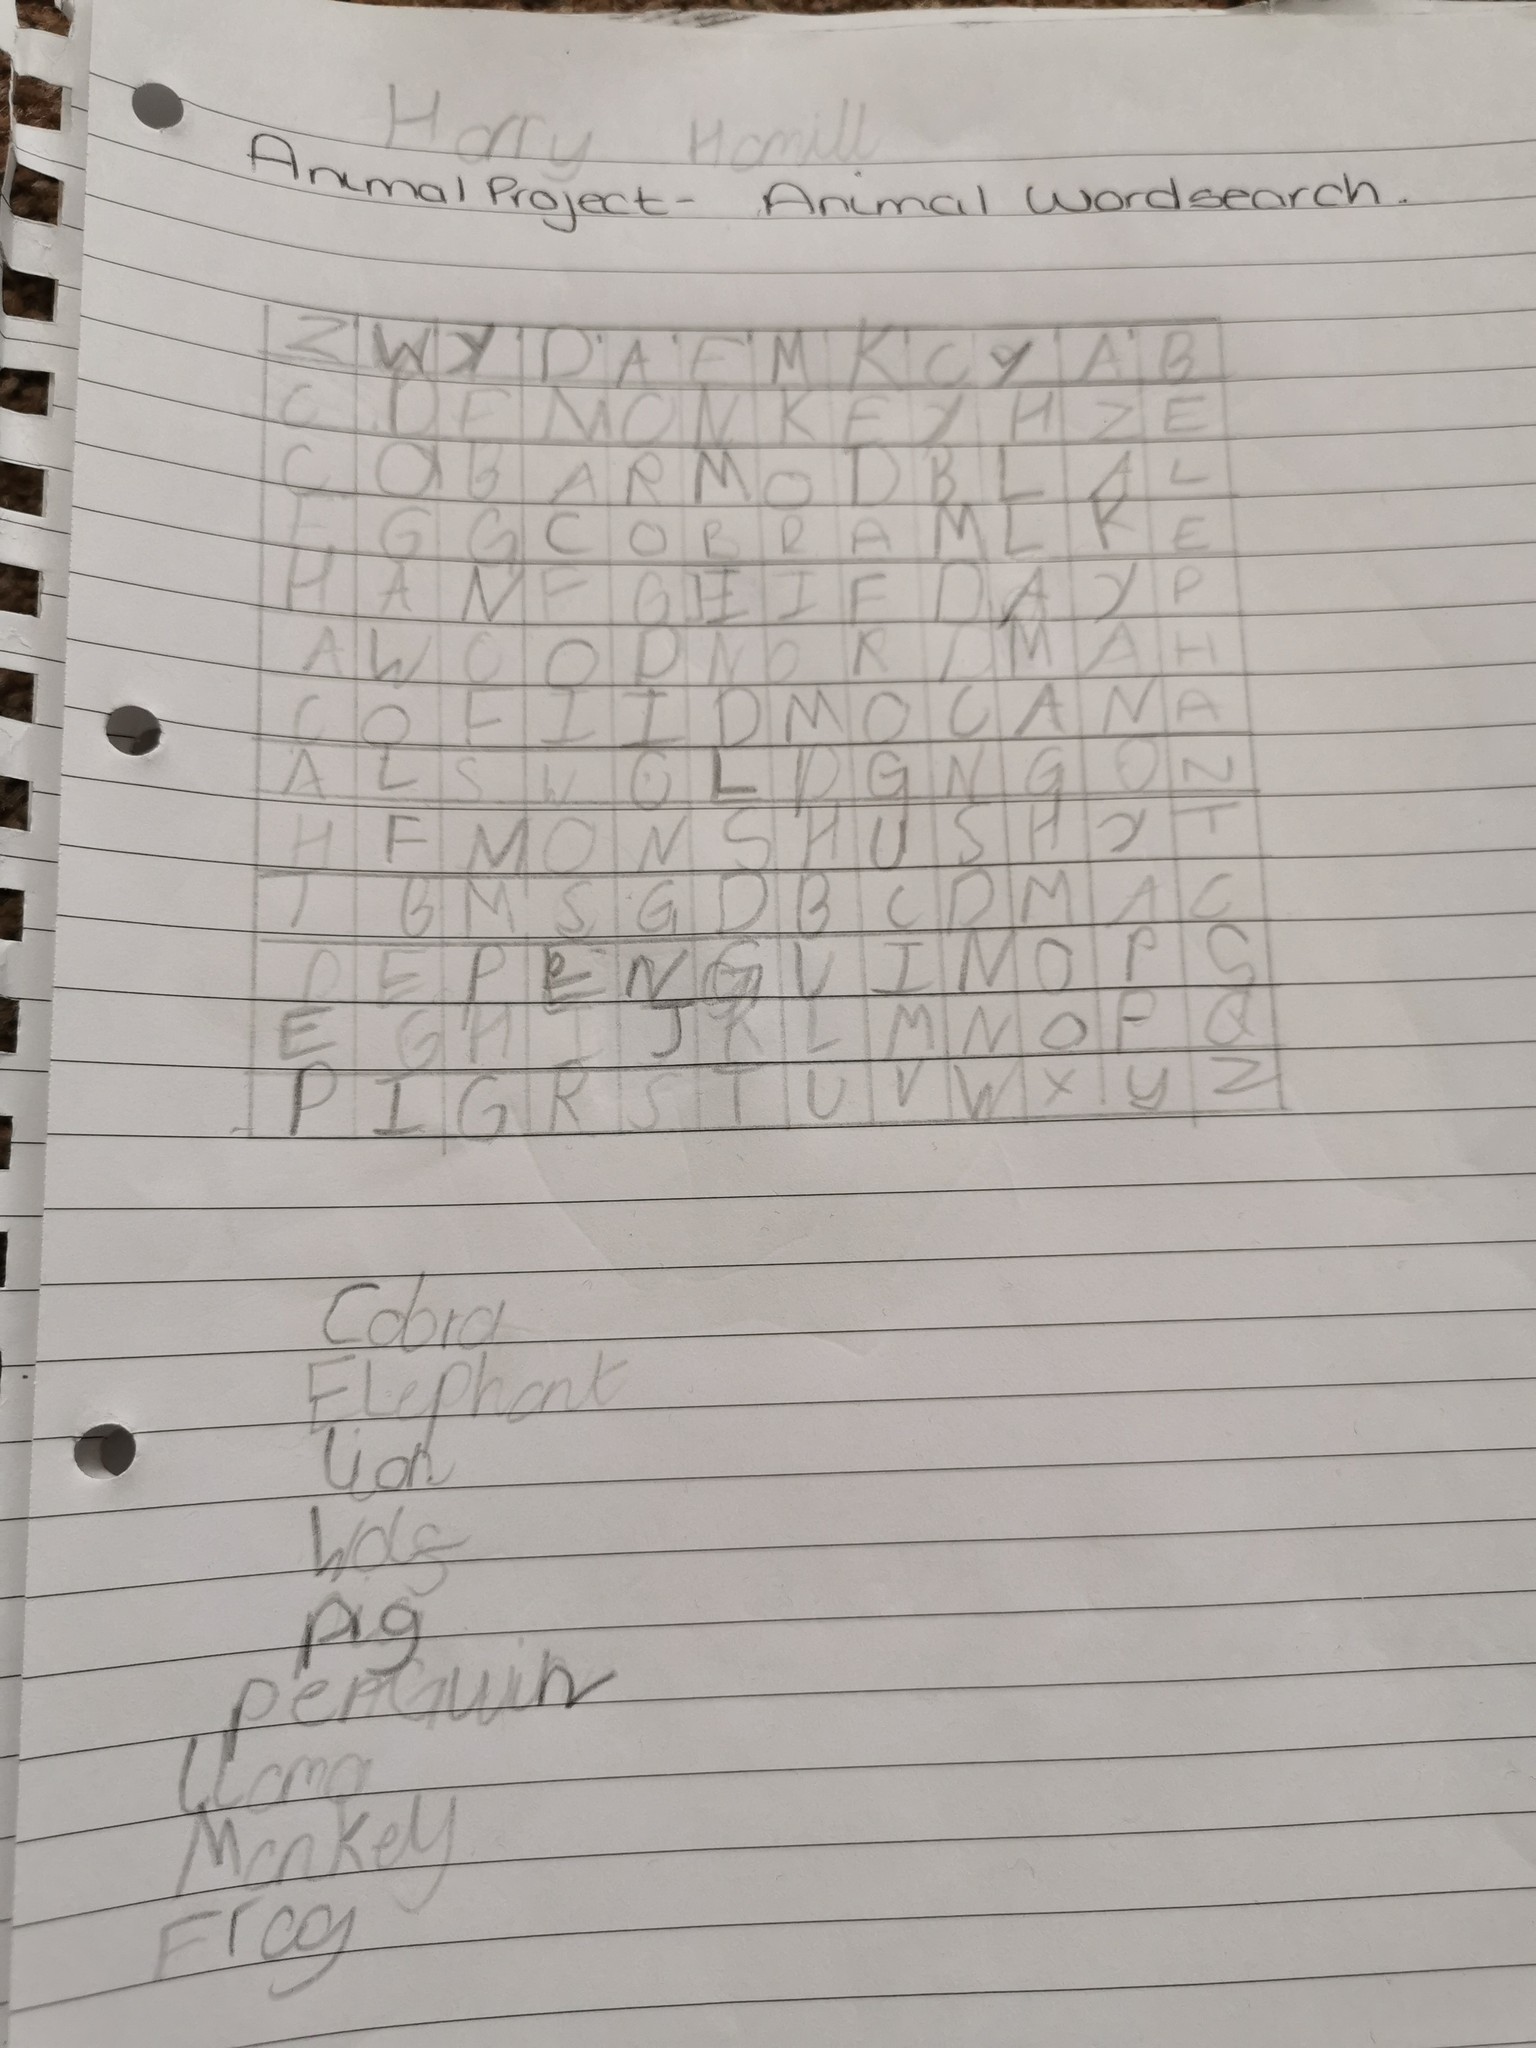 Harry Hamill
Animal Project - Animal Wordsearch.
Z W Y D A F M K C Y A B
C D F M O N K E Y H Z E
C O B A R M O D B L A L
F G G C O B R A M L K E
H A N F G H I F D A Y P
A W C O D N O R D M A H
C O F I I D M O C A N A
A L S W O L D G N G O N
H F M O N S H U S H Y T
T B M S G D B C D M A C
D E P E N G U I N O P S
E G H I J K L M N O P Q
P I G R S T U V W X Y Z
Cobra
Elephant
lion
Wolf
pig
penGuin
Llama
Monkey
Frog